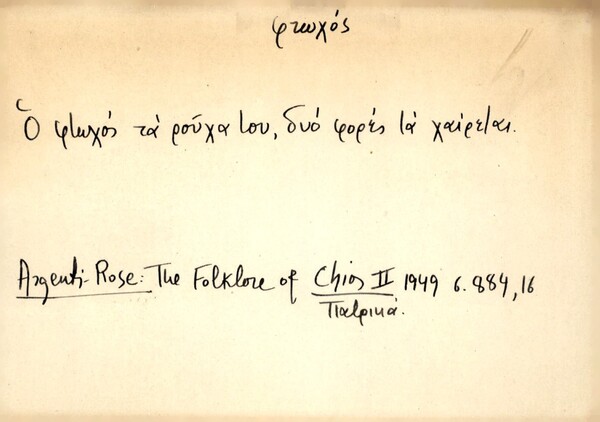 φτωχός
Ὁ φτωχός τὰ ροῦχα του, δυό φορές τὰ χαίρεται.
Argenti-Rose: The Folklore of Chios II 1949 σ. 884, 16
Πατρικά.